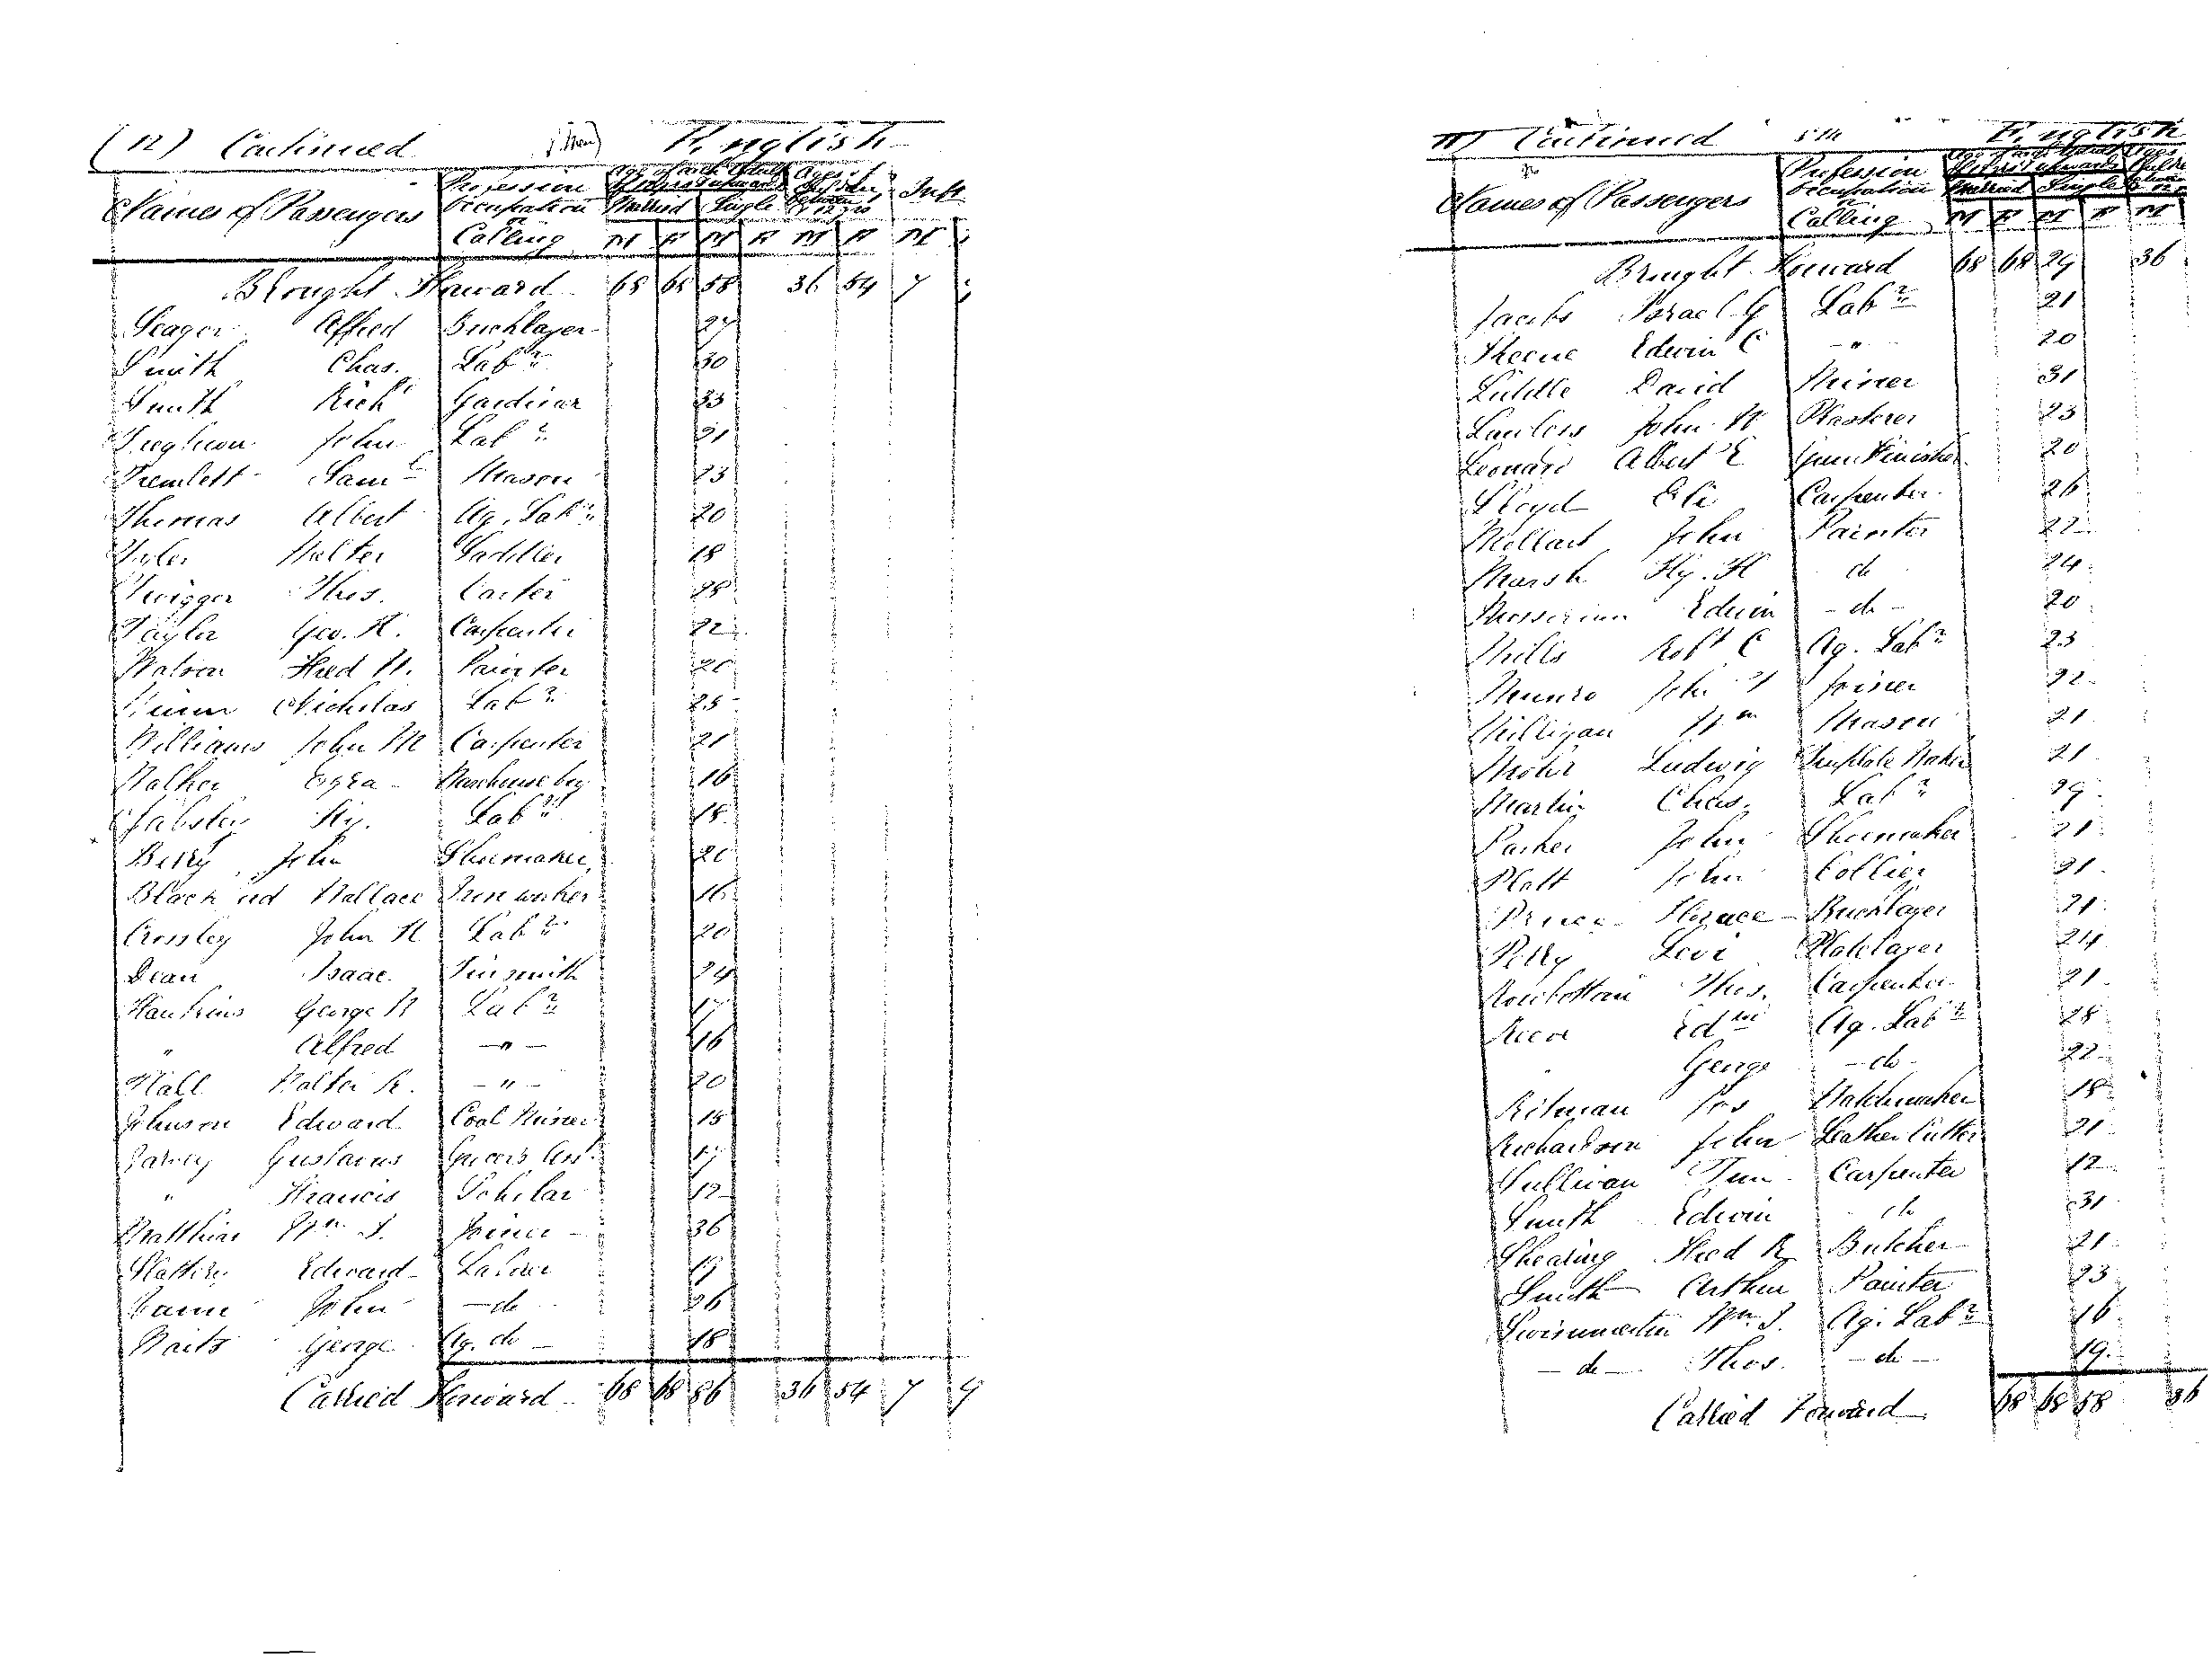 (12) Continued (Men) English
Names of Passengers Profession Occupation or Calling Age of each Adult of 12 years & upwards Married Single Inft
M F M F M F M
Brought Forward 68 68 58 36 54 7
Seager Alfred Bricklayer 27
Smith Chas. Labr 30
Smith Richd Gardiner 33
John Labr 21
Tremlett Saml Mason 23
Thomas Albert Ag. Labr 20
Tyler Walter Saddler 18
Twigger Thos. Carter 28
Taylor Geo. H. Carpenter 22
Watson Fred W. Painter 20
Nicholas Labr 25
Williams John M Carpenter 21
Walker Ezra Warehouse boy 16
Hy. Labr 18
Berry John Shoemaker 20
Wallace Iron worker 16
Crossley John H Labr 20
Dean Isaac Tinsmith 24
Hawkins George W Labr 17
" Alfred — " — 16
Hall Walter R. — " — 20
Johnson Edward Coal Miner 18
Gustavus Grocers Asst. 17
" Francis Scholar 12
Matthias Wm. J. Joiner 36
Edward Labour 19
John — do 26
Waits George Ag. do — 18
Carried Forward 68 68 86 36 54 7 9
11) Continued English
Names of Passengers Profession Occupation or Calling Married Single
M F M F M
Brought Forward 68 68 29 36
Jacobs Israel G Labr 21
Skeene Edwin C — " — 20
Liddle David Miner 31
Lawless John W Plasterer 23
Leonard Albert E Gun Finisher 20
Lloyd Eli Carpenter 26
Mellart John Painter 22
Marsh Hy. H do 24
Mosseman Edwin — do — 20
Mills Robt C Ag. Labr 23
Munro John Joiner 22
Milligan Wm Mason 21
Mohr Ludwig Tinplate Maker 21
Martin Chas. Labr 19
Parker John Shoemaker 21
Platt John Collier 21
Prince Horace Bricklayer 21
Perry Levi Platelayer 24
Rowbottom Thos. Carpenter 21
Reeve Edwd Ag. Labr 28
" George — do — 22
Ritman Jos Watchmaker 18
Richardson John Leather Cutter 21
Sullivan Tim Carpenter 12
Smith Edwin do 31
Shearing Fred R Butcher 21
Smith Arthur Painter 23
Wm J. Ag. Labr 16
— do — Thos. — do — 19
Carried Forward 68 68 58 36